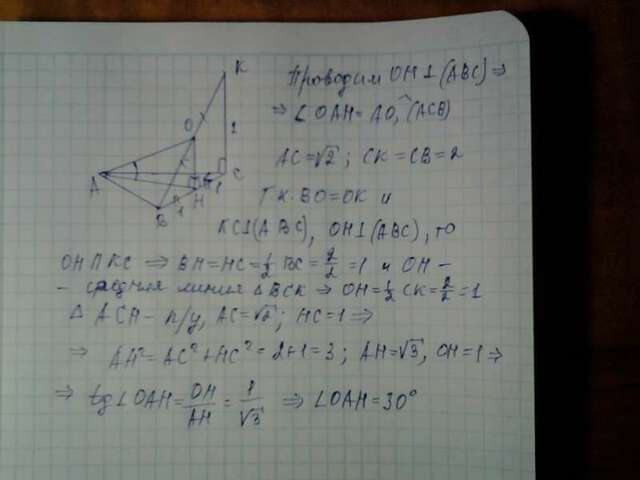 K
O
1
A
C
1
H
B
1
Проводим OH⊥(ABC)⇒
⇒ ∠OAH = AO,^(ACB)
AC=√2; CK=CB=2
Т.к. BO=OK и
KC⊥(ABC), OH⊥(ABC), то
OH∥KC ⇒ BH=HC=1/2 BC=2/2=1 и OH -
- средняя линия △BCK ⇒ OH=1/2 CK=2/2=1
△ ACH - п/у, AC=√2; HC=1 ⇒
⇒ AH²=AC²+HC²=2+1=3; AH=√3, OH=1 ⇒
⇒ tg∠OAH=OH/AH=1/√3 ⇒ ∠OAH=30°